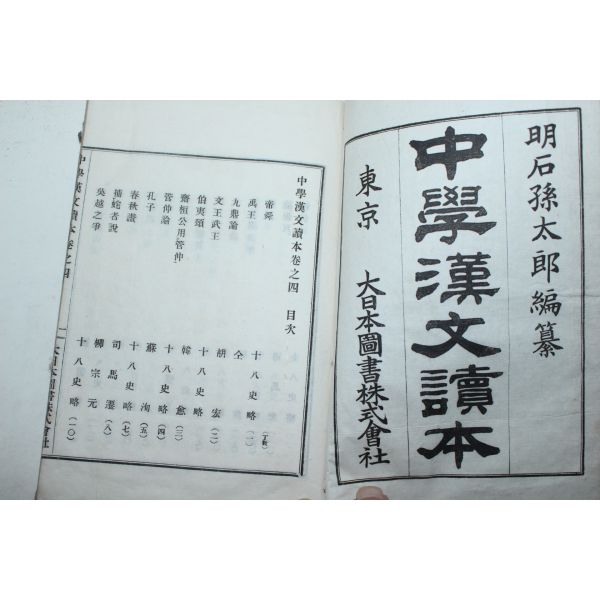 明石孫太郎編纂
中學漢文讀本
東京 大日本圖書株式會社
中學漢文讀本卷之四 目次
帝舜 十八史略(一)(丁數)
禹王 仝
九鼎論 胡宏(二)
文王武王 十八史略
伯夷頌 韓愈(三)
齊桓公用管仲 十八史略(四)
管仲論 蘇洵(五)
孔子 十八史略(七)
春秋議 司馬遷(八)
捕蛇者說 柳宗元
吳越之爭 十八史略(一〇)
中學漢文讀本卷之四 一 大日本圖書株式會社